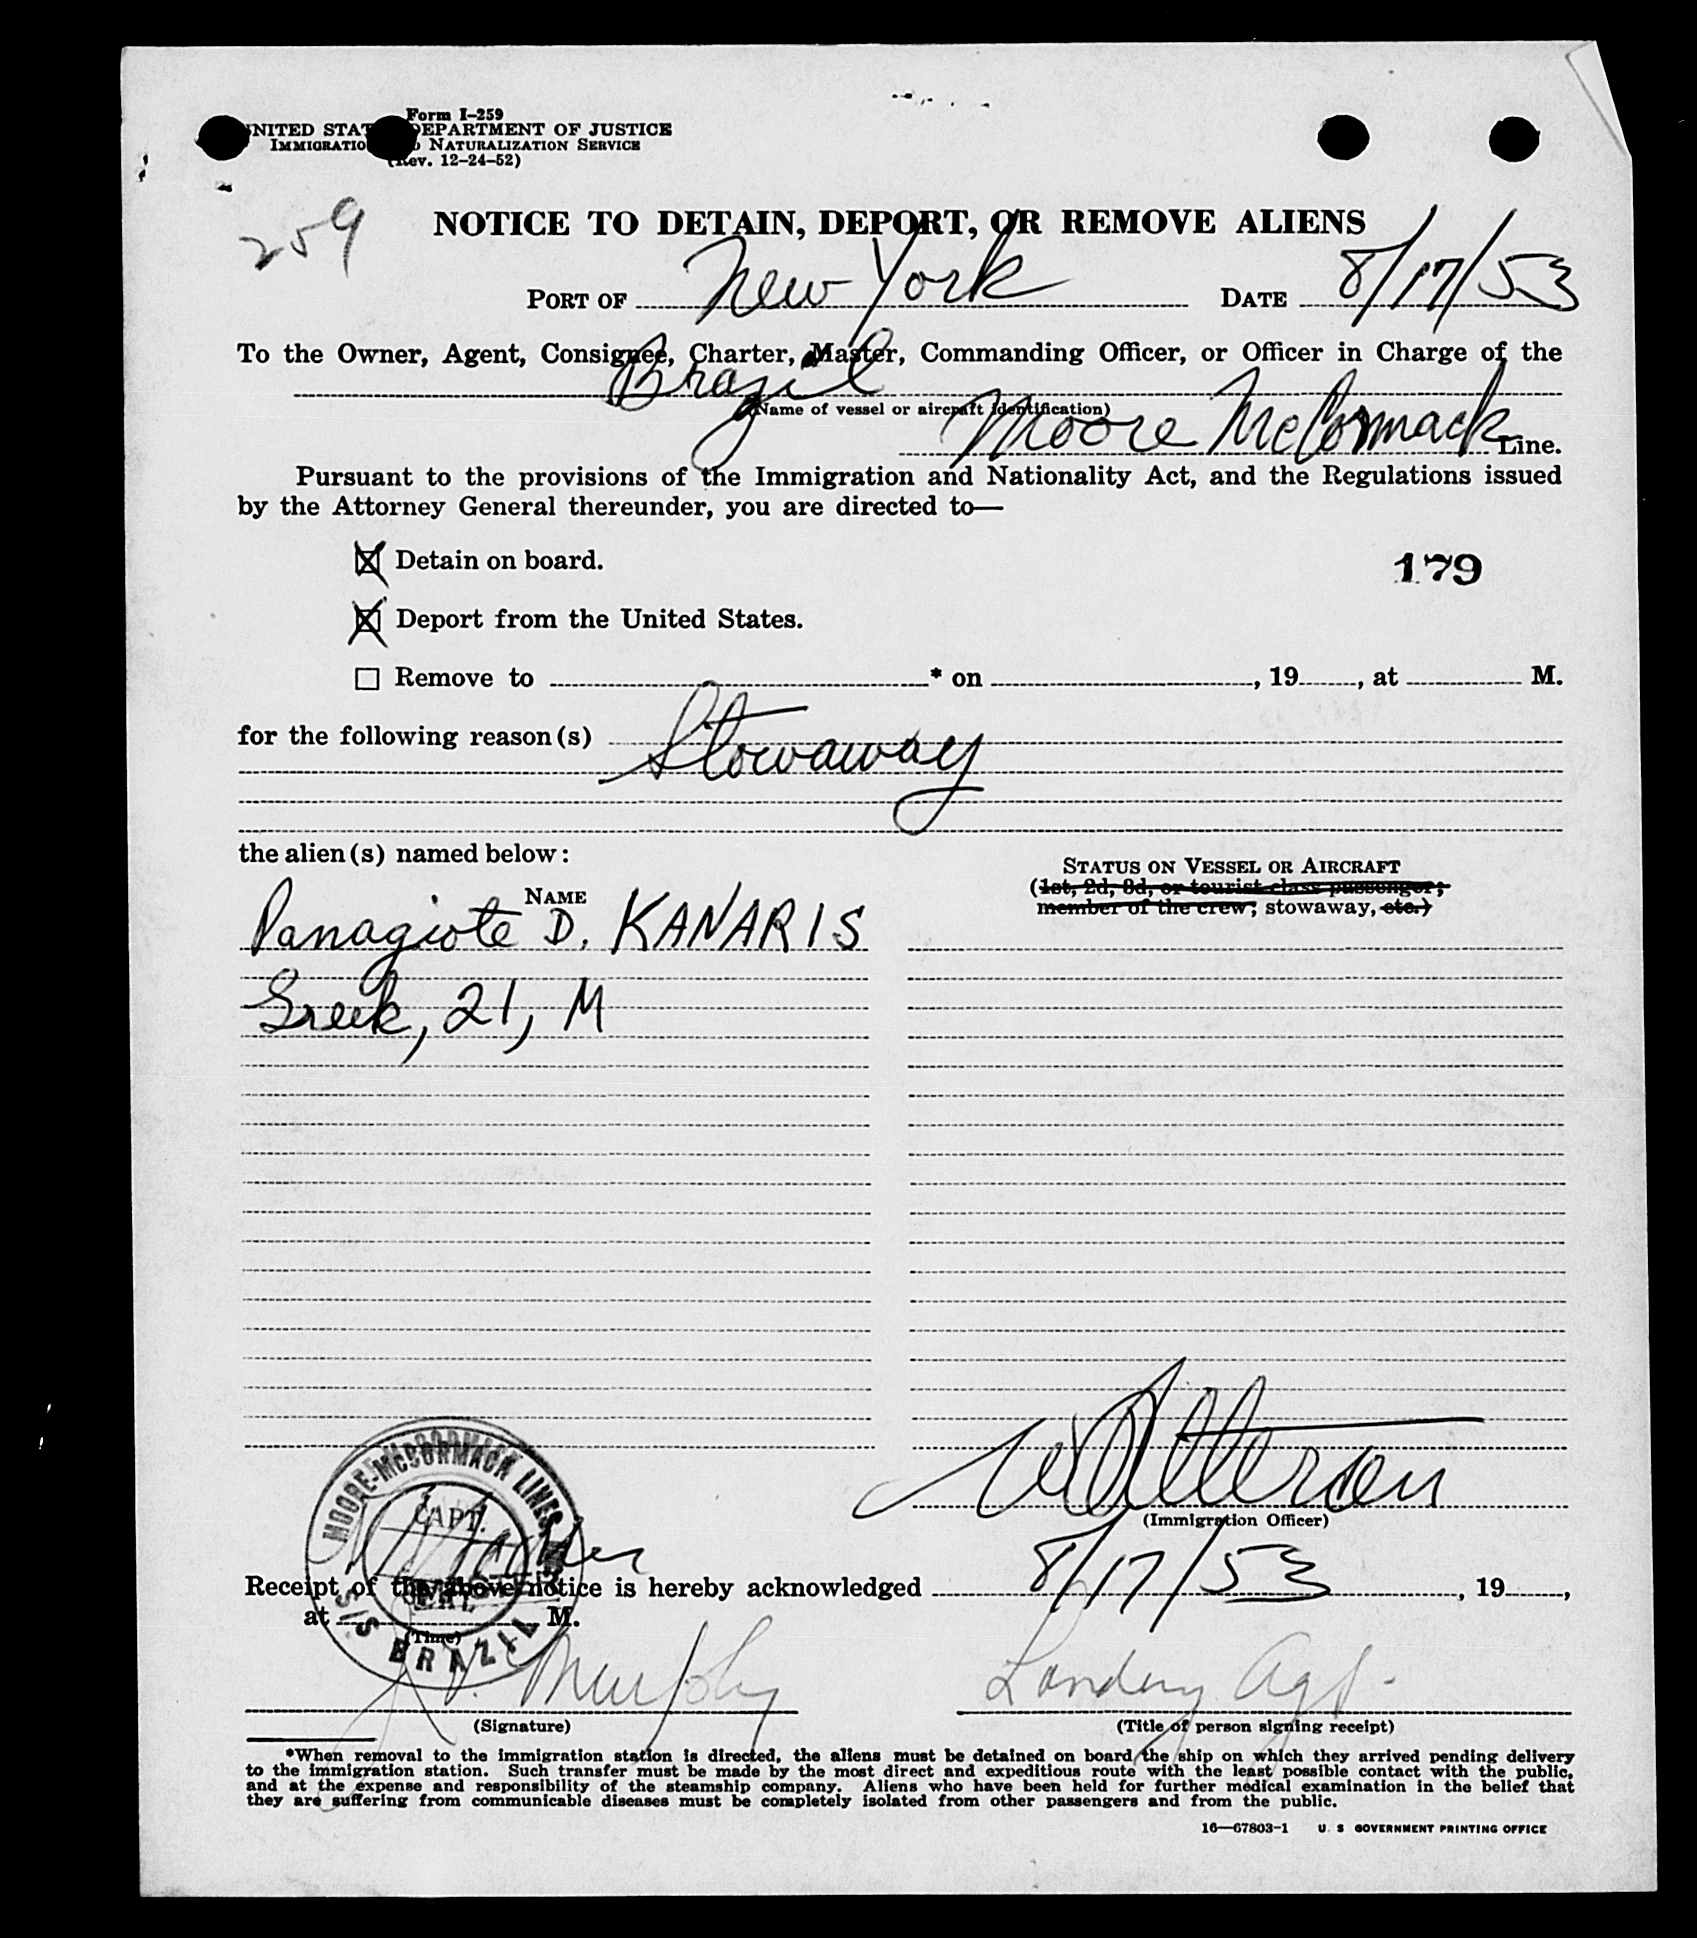 Form I-259
UNITED STATES DEPARTMENT OF JUSTICE
IMMIGRATION AND NATURALIZATION SERVICE
(Rev. 12-24-52)
259
NOTICE TO DETAIN, DEPORT, OR REMOVE ALIENS
PORT OF New York DATE 8/17/53
To the Owner, Agent, Consignee, Charter, Master, Commanding Officer, or Officer in Charge of the
Brazil
(Name of vessel or aircraft identification)
Moore McCormack Line.
Pursuant to the provisions of the Immigration and Nationality Act, and the Regulations issued
by the Attorney General thereunder, you are directed to—
☒ Detain on board.
179
☒ Deport from the United States.
☐ Remove to * on , 19 , at M.
for the following reason(s) Stowaway
the alien(s) named below:
STATUS ON VESSEL OR AIRCRAFT
(1st, 2d, 3d, or tourist class passenger;
member of the crew; stowaway, etc.)
NAME
Panagiote D. KANARIS
Greek, 21, M
(Immigration Officer)
MOORE-McCORMACK LINES
CAPT.
S/S BRAZIL
Receipt of the above notice is hereby acknowledged 8/17/53, 19 ,
at M.
(Time)
J. V. Murphy Landing Agt.
(Signature) (Title of person signing receipt)
*When removal to the immigration station is directed, the aliens must be detained on board the ship on which they arrived pending delivery
to the immigration station. Such transfer must be made by the most direct and expeditious route with the least possible contact with the public,
and at the expense and responsibility of the steamship company. Aliens who have been held for further medical examination in the belief that
they are suffering from communicable diseases must be completely isolated from other passengers and from the public.
16—67803-1 U. S GOVERNMENT PRINTING OFFICE